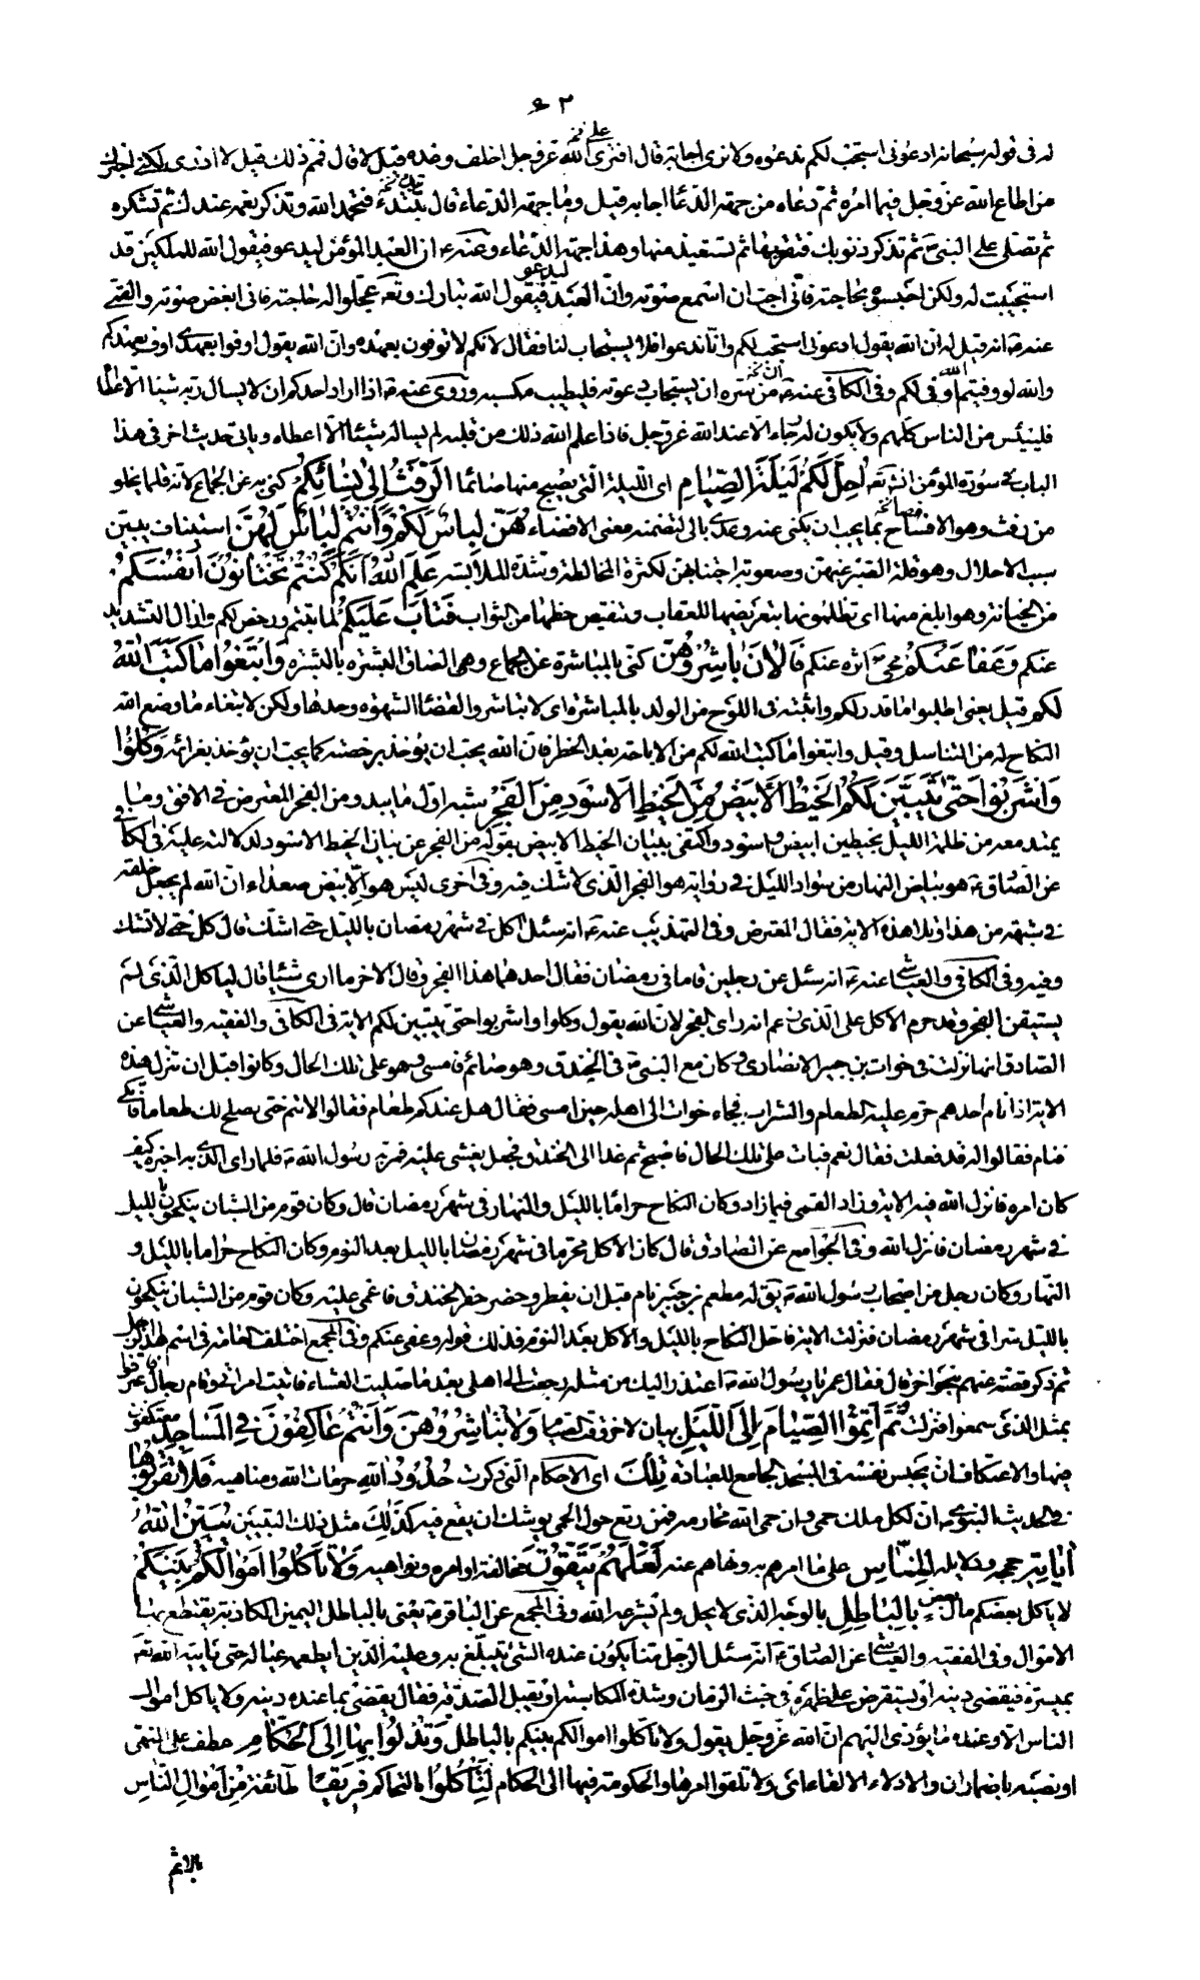 ٦٢
له فى قوله سبحانه ادعونى استجب لكم ندعوه ولا نرى اجابة قال افترى الله عز وجل اخلف وعده قيل لا قال فمم ذلك قيل لا ادرى لكنى اخبرك
من اطاع الله عز وجل فيما امره ثم دعاه من جهة الدعا اجابه قيل وما جهة الدعاء قال تبتدء فتحمد الله وتذكر نعمه عندك ثم تشكره
ثم تصلى على النبى ثم تذكر ذنوبك فتقر بها ثم تستعيذ منها وهذا جهة الدعاء وعنه ان العبد المؤمن ليدعو فيقول الله للملكين قد
استجيبت له ولكن احبسوه بحاجته فانى احب ان اسمع صوته وان العبد ليدعو فيقول الله تبارك وتع عجلوا له حاجته فانى ابغض صوته والقمى
عنه انه قيل له ان الله يقول ادعونى استجب لكم وانا ندعو فلا يستجاب لنا فقال لانكم لا توفون بعهده وان الله يقول اوفوا بعهدى اوف بعهدكم
والله لو وفيتم الله اوفى لكم وفى الكافى عنه من سره ان يستجاب دعوته فليطيب مكسبه وروى عنه اذا اراد احدكم ان لا يسال ربه شيئا الا اعطاه
فلييئس من الناس كلهم ولا يكون له رجاء الا عند الله عز وجل فاذا علم الله ذلك من قلبه لم يساله شيئا الا اعطاه وياتى حديث اخر فى هذا
الباب فى سورة المؤمن انش تع احل لكم ليلة الصيام اى الليلة التى يصبح منها صائما الرفث الى نسائكم كنى به عن الجماع لانه قلما يخلو
من رفث وهو الافصاح بما يجب ان يكنى عنه وعدى بالى لتضمنه معنى الافضاء هن لباس لكم وانتم لباس لهن استيناف يبين
سبب الاحلال وهو قلة الصبر عنهن وصعوبة اجتنابهن لكثرة المخالطة وشدة الملابسه علم الله انكم كنتم تختانون انفسكم
من الخيانة وهو ابلغ منها اى تظلمونها بتعريضها للعقاب وتنقيص حظها من الثواب فتاب عليكم لما تبتم ورخص لكم وازال التشديد
عنكم وعفا عنكم محى اثره عنكم فالان باشروهن كنى بالمباشرة عن الجماع وهى الصاق البشرة بالبشرة وابتغوا ما كتب الله
لكم قيل يعنى اطلبوا ما قدر لكم واثبته فى اللوح من الولد بالمباشرة اى لا تباشروا لقضاء الشهوة وحدها ولكن لابتغاء ما وضع الله
النكاح له من التناسل وقيل وابتغوا ما كتب الله لكم من الاباحة بعد الحظر فان الله يحب ان يؤخذ برخصه كما يحب ان يؤخذ بعزائمه وكلوا
واشربوا حتى يتبين لكم الخيط الابيض من الخيط الاسود من الفجر شبه اول ما يبدو من الفجر المعترض فى الافق وما
يمتد معه من ظلمة الليل بخيطين ابيض واسود واكتفى ببيان الخيط الابيض بقوله من الفجر عن بيان الخيط الاسود لدلالته عليه فى الكافى
عن الصادق هو بياض النهار من سواد الليل فى رواية هو الفجر الذى لا شك فيه وفى اخرى ليس هو الابيض صعداء ان الله لم يجعل خلقه
فى شبهة من هذا وتلا هذه الاية فقال المعترض وفى التهذيب عنه انه سئل اكل فى شهر رمضان بالليل حتى اشك قال كل حتى لا تشك
وفيه وفى الكافى والعياشى عنه انه سئل عن رجلين قاما فى رمضان فقال احدهما هذا الفجر وقال الاخر ما ارى شيئا قال لياكل الذى لم
يستيقن الفجر وقد حرم الاكل على الذى زعم انه راى الفجر لان الله يقول وكلوا واشربوا حتى يتبين لكم الاية فى الكافى والفقيه والعياشى عن
الصادق انها نزلت فى خوات بن جبير الانصارى وكان مع النبى فى الخندق وهو صائم فامسى وهو على تلك الحال وكانوا قبل ان تنزل هذه
الاية اذا نام احدهم حرم عليه الطعام والشراب فجاء خوات الى اهله حين امسى فقال هل عندكم طعام فقالوا لا تنم حتى يصلح لك طعاما فاتكى
فنام فقالوا له قد فعلت فقال نعم فبات على تلك الحال فاصبح ثم غدا الى الخندق فجعل يغشى عليه فمر به رسول الله فلما راى الذى به اخبره كيف
كان امره فانزل الله فيه الاية وزاد القمى فيما زاد وكان النكاح حراما بالليل والنهار فى شهر رمضان قال وكان قوم من الشبان ينكحون بالليل
فى شهر رمضان فانزل الله وفى الجوامع عن الصادق قال كان الاكل محرما فى شهر رمضان بالليل بعد النوم وكان النكاح حراما بالليل و
النهار وكان رجل من اصحاب رسول الله يق له مطعم بن جبير نام قبل ان يفطر وحضر حفر الخندق فاغمى عليه وكان قوم من الشبان ينكحون
بالليل سرا فى شهر رمضان فنزلت الاية فاحل النكاح بالليل والاكل بعد النوم فذلك قوله وعفى عنكم وفى المجمع اختلف العامة فى اسم هذا الرجل
ثم ذكر قصته عنهم بنحو اخر قال فقال عمر يا رسول الله اعتذر اليك من مثله رجعت الى اهلى بعد ما صليت العشاء فاتيت امراتى وقام رجال واعترفوا
بمثل الذى سمعوا فنزلت ثم اتموا الصيام الى الليل بيان لاخر وقت الصيام ولا تباشروهن وانتم عاكفون فى المساجد معتكفون
فيها والاعتكاف ان يحبس نفسه فى المسجد الجامع للعبادة تلك اى الاحكام التى ذكرت حدود الله حرمات الله ومناهيه فلا تقربوها
فى الحديث النبوى ان لكل ملك حمى وان حمى الله محارمه فمن رتع حول الحمى يوشك ان يقع فيه كذلك مثل ذلك التبيين يبين الله
اياته حججه ودلايله للناس على ما امرهم به ونهاهم عنه لعلهم يتقون مخالفة اوامره ونواهيه ولا تاكلوا اموالكم بينكم
لا ياكل بعضكم مال بعض بالباطل بالوجه الذى لا يحل ولم يشرعه الله وفى المجمع عن الباقر يعنى بالباطل اليمين الكاذبة يقتطع بها
الاموال وفى الفقيه والعياشى عن الصادق انه سئل الرجل منا يكون عنده الشئ يتبلغ به وعليه الدين ايطعمه عياله حتى ياتيه الله تع
بميسرة فيقضى دينه او يستقرض على ظهره فى خبث الزمان وشدة المكاسب او يقبل الصدقة فقال يقضى بما عنده دينه ولا ياكل اموال
الناس الا وعنده ما يؤدى اليهم ان الله عز وجل يقول ولا تاكلوا اموالكم بينكم بالباطل وتدلوا بها الى الحكام عطف على النهى
او نصبه باضمار ان والادلاء الالقاء اى ولا تلقوا امرها والحكومة فيها الى الحكام لتاكلوا بالتحاكم فريقا طائفة من اموال الناس
بالاثم